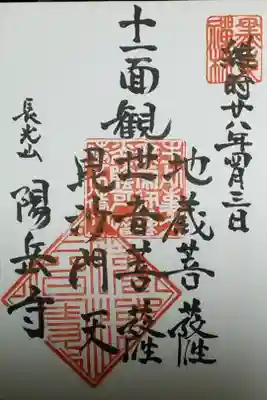 維時廿八年四月三日
地蔵菩薩
十一面観世音菩薩
毘沙門天
長光山
陽岳寺